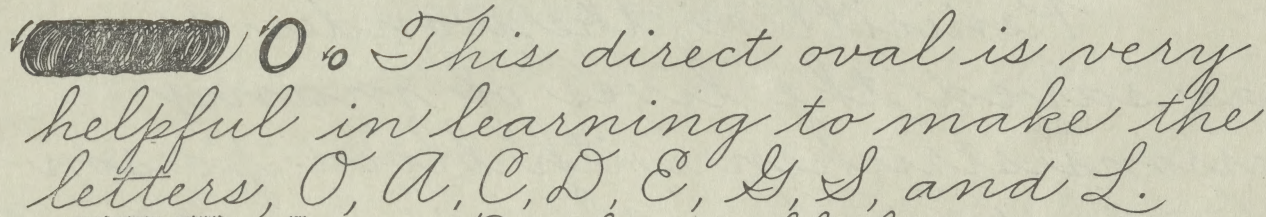 O o This direct oval is very
helpful in learning to make the
letters, O, A, C, D, E, G, S, and L.